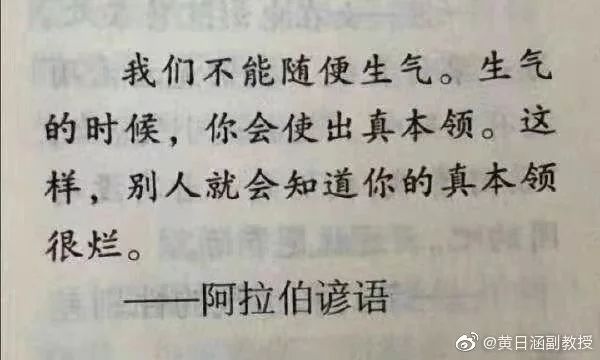 我们不能随便生气。生气
的时候，你会使出真本领。这
样，别人就会知道你的真本领
很烂。
——阿拉伯谚语
@黄日涵副教授